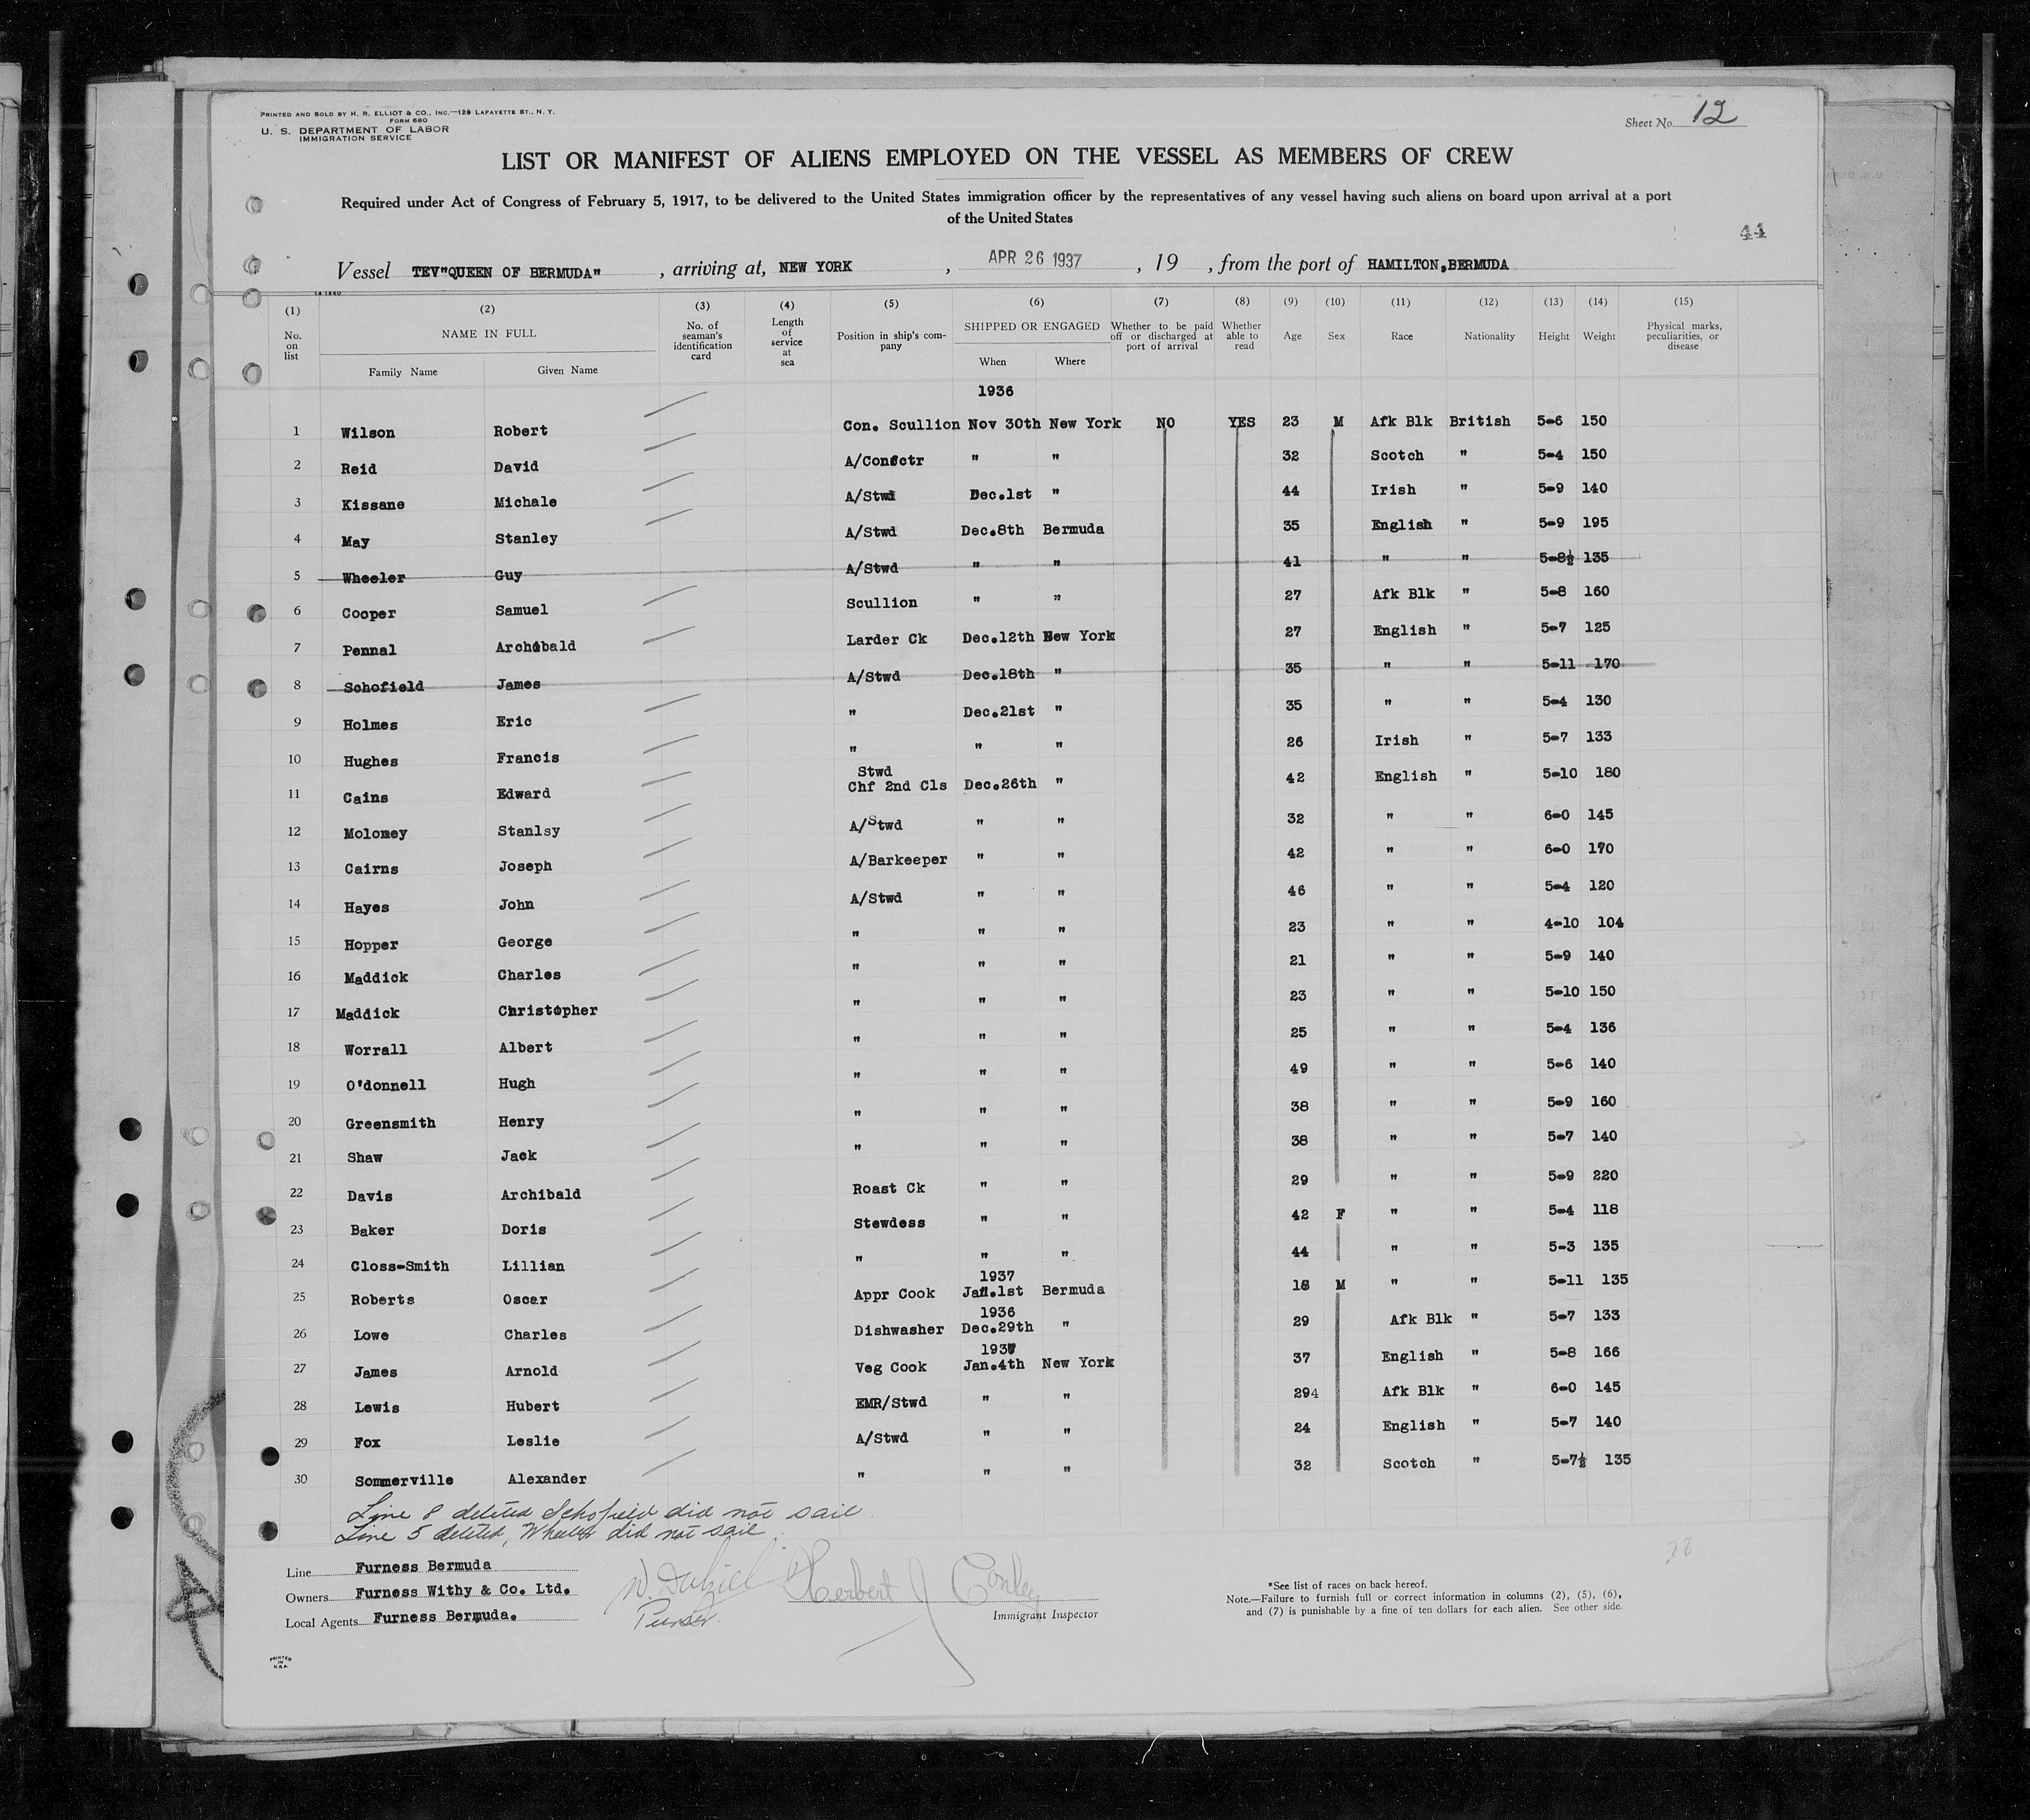 PRINTED AND SOLD BY H. R. ELLIOT & CO., INC.—129 LAFAYETTE ST., N. Y.
FORM 680
U. S. DEPARTMENT OF LABOR
IMMIGRATION SERVICE
Sheet No. 12
LIST OR MANIFEST OF ALIENS EMPLOYED ON THE VESSEL AS MEMBERS OF CREW
Required under Act of Congress of February 5, 1917, to be delivered to the United States immigration officer by the representatives of any vessel having such aliens on board upon arrival at a port
of the United States
44
Vessel TEV"QUEEN OF BERMUDA" , arriving at, NEW YORK , APR 26 1937 , 19 , from the port of HAMILTON,BERMUDA
14 1240
(1) (2) (3) (4) (5) (6) (7) (8) (9) (10) (11) (12) (13) (14) (15)
No. on list NAME IN FULL Family Name Given Name No. of seaman's identification card Length of service at sea Position in ship's company SHIPPED OR ENGAGED When Where Whether to be paid off or discharged at port of arrival Whether able to read Age Sex Race Nationality Height Weight Physical marks, peculiarities, or disease
1936
1 Wilson Robert Con. Scullion Nov 30th New York NO YES 23 M Afk Blk British 5-6 150
2 Reid David A/Confctr " " 32 Scotch " 5-4 150
3 Kissane Michale A/Stwd Dec.1st " 44 Irish " 5-9 140
4 May Stanley A/Stwd Dec.8th Bermuda 35 English " 5-9 195
5 Wheeler Guy A/Stwd " " 41 " " 5-8½ 135
6 Cooper Samuel Scullion " " 27 Afk Blk " 5-8 160
7 Pennal Archibald Larder Ck Dec.12th New York 27 English " 5-7 125
8 Schofield James A/Stwd Dec.18th " 35 " " 5-11 170
9 Holmes Eric " Dec.21st " 35 " " 5-4 130
10 Hughes Francis " " " 26 Irish " 5-7 133
Stwd
11 Cains Edward Chf 2nd Cls Dec.26th " 42 English " 5-10 180
12 Moloney Stanlsy A/Stwd " " 32 " " 6-0 145
13 Cairns Joseph A/Barkeeper " " 42 " " 6-0 170
14 Hayes John A/Stwd " " 46 " " 5-4 120
15 Hopper George " " " 23 " " 4-10 104
16 Maddick Charles " " " 21 " " 5-9 140
17 Maddick Christopher " " " 23 " " 5-10 150
18 Worrall Albert " " " 25 " " 5-4 136
19 O'donnell Hugh " " " 49 " " 5-6 140
20 Greensmith Henry " " " 38 " " 5-9 160
21 Shaw Jack " " " 38 " " 5-7 140
22 Davis Archibald Roast Ck " " 29 " " 5-9 220
23 Baker Doris Stewdess " " 42 F " " 5-4 118
24 Closs-Smith Lillian " " " 44 " " 5-3 135
1937
25 Roberts Oscar Appr Cook Jan.1st Bermuda 18 M " " 5-11 135
1936
26 Lowe Charles Dishwasher Dec.29th " 29 Afk Blk " 5-7 133
1937
27 James Arnold Veg Cook Jan.4th New York 37 English " 5-8 166
28 Lewis Hubert EMR/Stwd " " 294 Afk Blk " 6-0 145
29 Fox Leslie A/Stwd " " 24 English " 5-7 140
30 Sommerville Alexander " " " 32 Scotch " 5-7½ 135
Line 8 deleted Schofield did not sail.
Line 5 deleted, Wheeler did not sail.
28
Line Furness Bermuda
Owners Furness Withy & Co. Ltd.
Local Agents Furness Bermuda.
N. Dalziel
Purser.
Herbert J Conley
Immigrant Inspector
*See list of races on back hereof.
Note.—Failure to furnish full or correct information in columns (2), (5), (6),
and (7) is punishable by a fine of ten dollars for each alien. See other side.
PRINTED
IN
U.S.A.